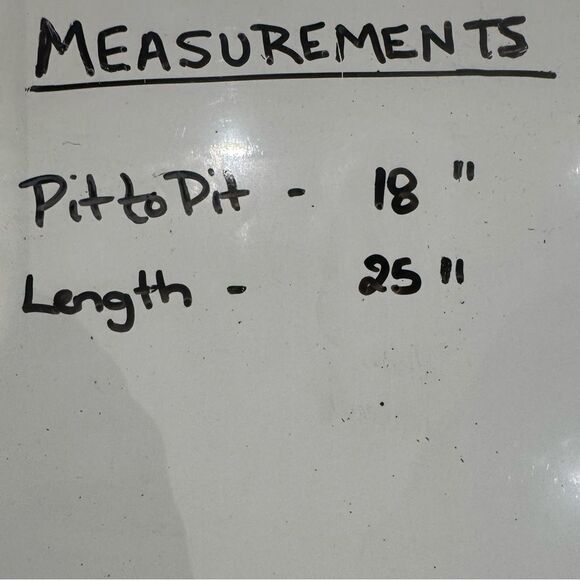 MEASUREMENTS
Pit to Pit - 18 "
Length - 25 "